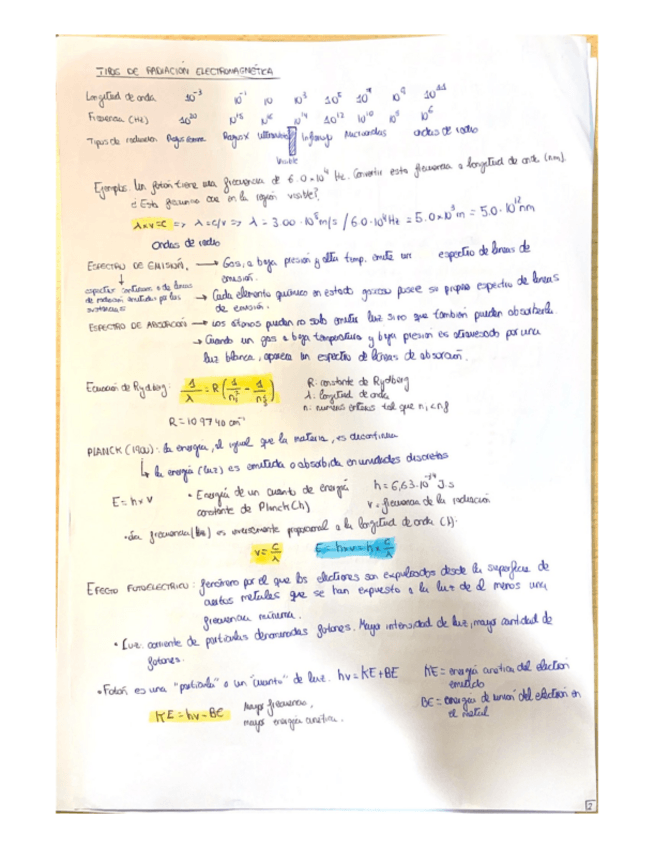 TIPOS DE RADIACIÓN ELECTROMAGNÉTICA
Longitud de onda 10⁻³ 10⁻¹ 10 10³ 10⁵ 10⁹ 10¹¹
Frecuencia (Hz) 10²⁰ 10¹⁸ 10¹⁶ 10¹⁴ 10¹² 10¹⁰ 10⁸ 10⁶
Tipos de radiación Rayos X Ultravioleta Infrarrojo Microondas ondas de radio
Visible
Ejemplo: Un fotón tiene una frecuencia de 6.0×10⁴ Hz. Convertir esta frecuencia a longitud de onda (nm).
¿Esta frecuencia cae en la región visible?
λ×ν=c => λ=c/ν => λ = 3.00·10⁸ m/s / 6.0·10⁴ Hz = 5.0×10³ m = 5.0·10¹² nm
Ondas de radio
ESPECTRO DE EMISIÓN. → Gas, a baja presión y alta temp. emite un espectro de líneas de
emisión.
espectro continuo o de líneas
de radiación emitida por las
sustancias
→ Cada elemento químico en estado gaseoso posee su propio espectro de líneas
de emisión.
ESPECTRO DE ABSORCIÓN → Los átomos pueden no solo emitir luz sino que también pueden absorberla.
→ Cuando un gas a baja temperatura y baja presión es atravesado por una
luz blanca, aparece un espectro de líneas de absorción.
Ecuación de Rydberg: 1/λ = R (1/n₁² - 1/n₂²) R: constante de Rydberg
λ: longitud de onda
n: números enteros tal que
R = 109740 cm⁻¹
PLANCK (1900): la energía, al igual que la materia, es discontinua
↳ la energía (luz) es emitida o absorbida en unidades discretas
E = h×ν • Energía de un cuanto de energía
constante de Planck (h)
J.s
ν = frecuencia de la radiación
•La frecuencia es inversamente proporcional a la longitud de onda (λ).
ν = c/λ E = h×ν = h × c/λ
EFECTO FOTOELÉCTRICO: fenómeno por el que los electrones son expulsados desde la superficie de
ciertos metales que se han expuesto a la luz de al menos una
frecuencia mínima.
• Luz: corriente de partículas denominadas fotones. Mayor intensidad de luz, mayor cantidad de
fotones.
•Fotón es una "partícula" o un "cuanto" de luz. hν = KE+BE KE = energía cinética del electrón
emitido
KE = hν-BE Mayor frecuencia,
mayor energía cinética.
BE = energía de unión del electrón en
el metal
2